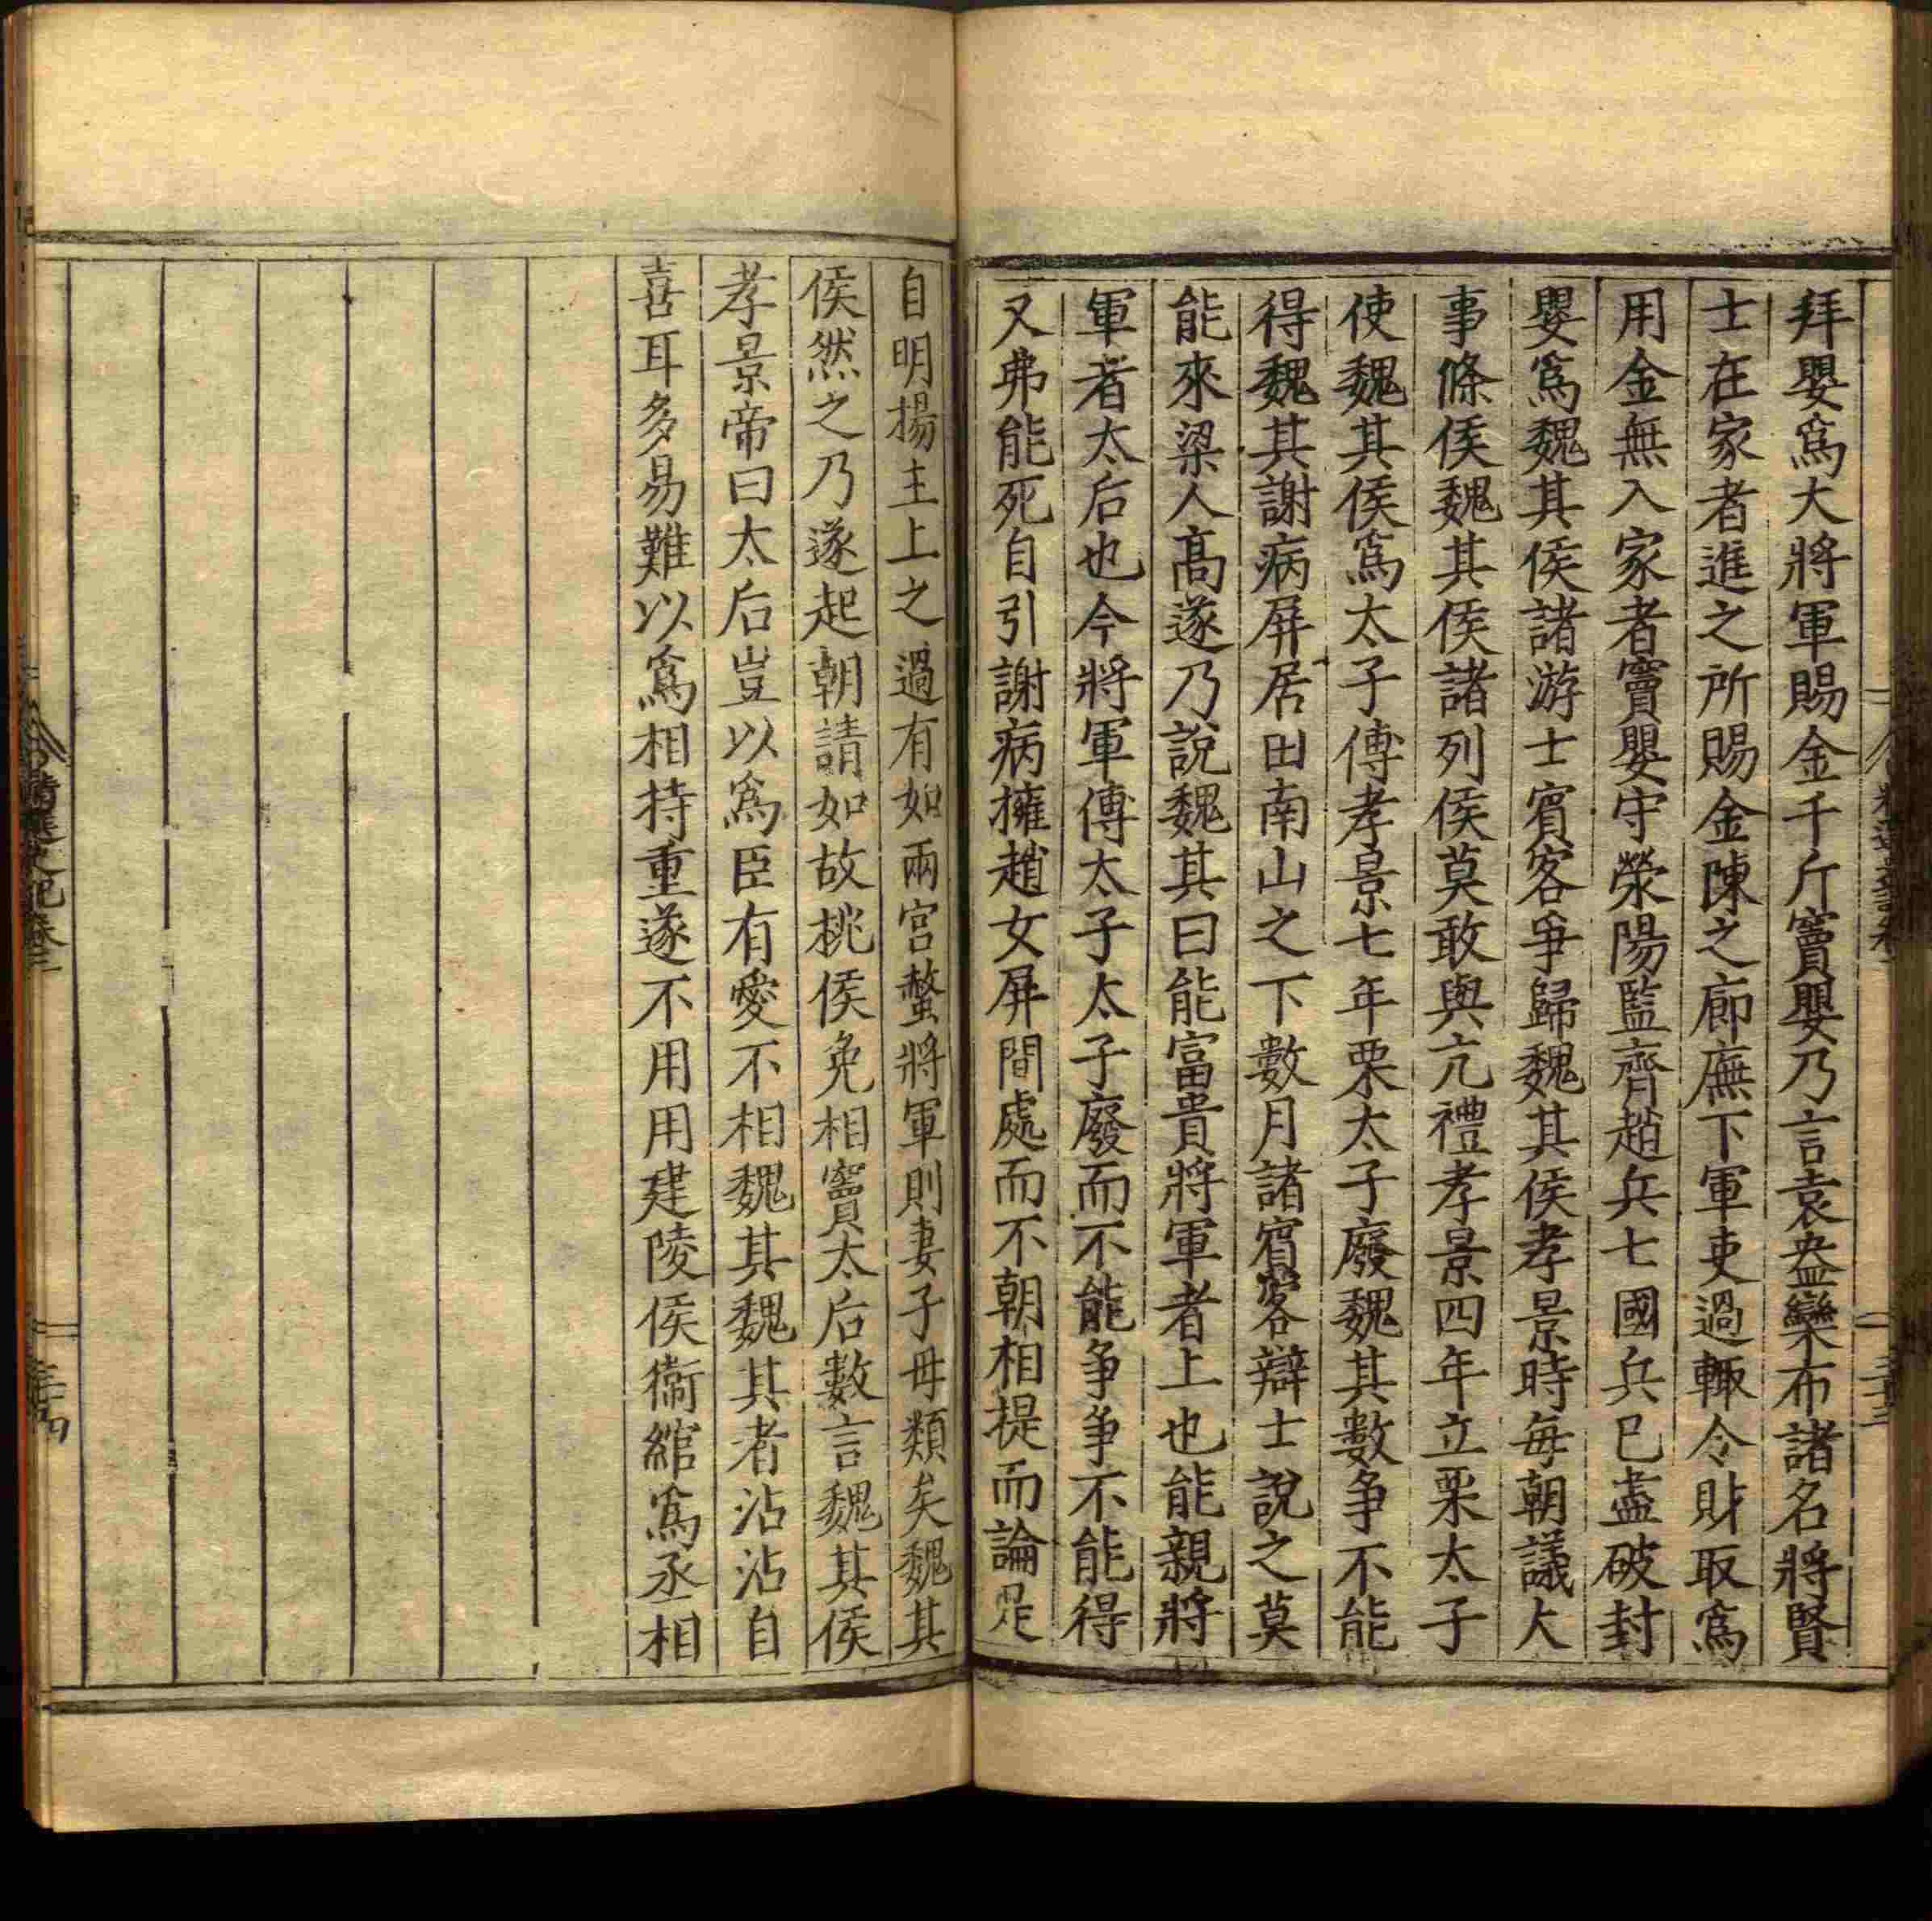 拜嬰爲大將軍賜金千斤竇嬰乃言袁盎欒布諸名將賢
士在家者進之所賜金陳之廊廡下軍吏過輒令財取爲
用金無入家者竇嬰守滎陽監齊趙兵七國兵已盡破封
嬰爲魏其侯諸游士賓客爭歸魏其侯孝景時每朝議大
事條侯魏其侯諸列侯莫敢與亢禮孝景四年立栗太子
使魏其侯爲太子傅孝景七年栗太子廢魏其數争不能
得魏其謝病屏居田南山之下數月諸賓客辯士說之莫
能來梁人高遂乃說魏其曰能富貴將軍者上也能親將
軍者太后也今將軍傅太子太子廢而不能争争不能得
又弗能死自引謝病擁趙女屏間處而不朝相提而論是
自明揚主上之過有如兩宮螫將軍則妻子毋類矣魏其
侯然之乃遂起朝請如故桃侯免相竇太后數言魏其侯
孝景帝曰太后豈以爲臣有愛不相魏其魏其者沾沾自
喜耳多易難以爲相持重遂不用用建陵侯衞綰爲丞相
精選史記卷三
三十四